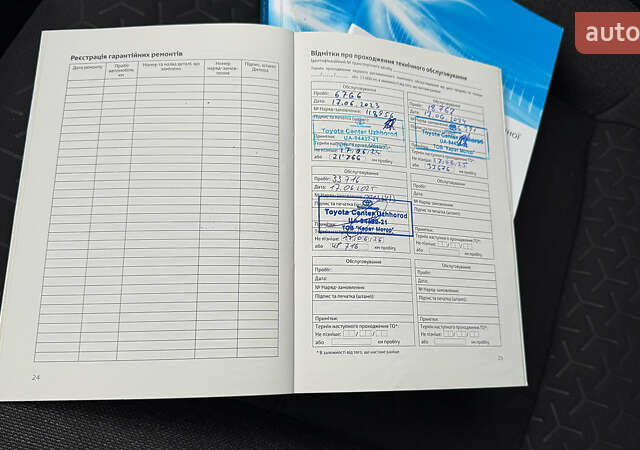 auto
Реєстрація гарантійних ремонтів
Дата ремонту
Пробіг автомобіля, км
Номер та назва деталі, що замінено
Номер наряд-замовлення
Підпис, штамп Дилера
24
Відмітки про проходження технічного обслуговування
Обслуговування
Пробіг: 6766
Дата: 17.06.2023
№ Наряд-замовлення: 118956
Підпис та печатка (штамп):
Toyota Center Uzhhorod
UA-94432-21
Примітки:
Не пізніше: 17.06.24
або 21766 км пробігу
Обслуговування
Пробіг: 18767
Дата: 17.06.2024
№ Наряд-замовлення:
Toyota Center Uzhhorod
ТОВ "Карат Мотор"
Не пізніше: 17.06.25
або 33626 км пробігу
Обслуговування
Пробіг: 33716
Дата: 17.06.2025
№ Наряд-замовлення:
Підпис та печатка
Toyota Center Uzhhorod
UA-94432-21
ТОВ "Карат Мотор"
Не пізніше: 17.06.26
або 48716 км пробігу
Обслуговування
Пробіг:
Дата:
№ Наряд-замовлення:
Підпис та печатка (штамп):
Примітки:
Термін наступного проходження ТО*:
Не пізніше:
або км пробігу
Обслуговування
Пробіг:
Дата:
№ Наряд-замовлення:
Підпис та печатка (штамп):
Примітки:
Термін наступного проходження ТО*:
Не пізніше:
або км пробігу
Обслуговування
Пробіг:
Дата:
№ Наряд-замовлення:
Підпис та печатка (штамп):
Примітки:
Термін наступного проходження ТО*:
Не пізніше:
або км пробігу
* В залежності від того, що настане раніше
25